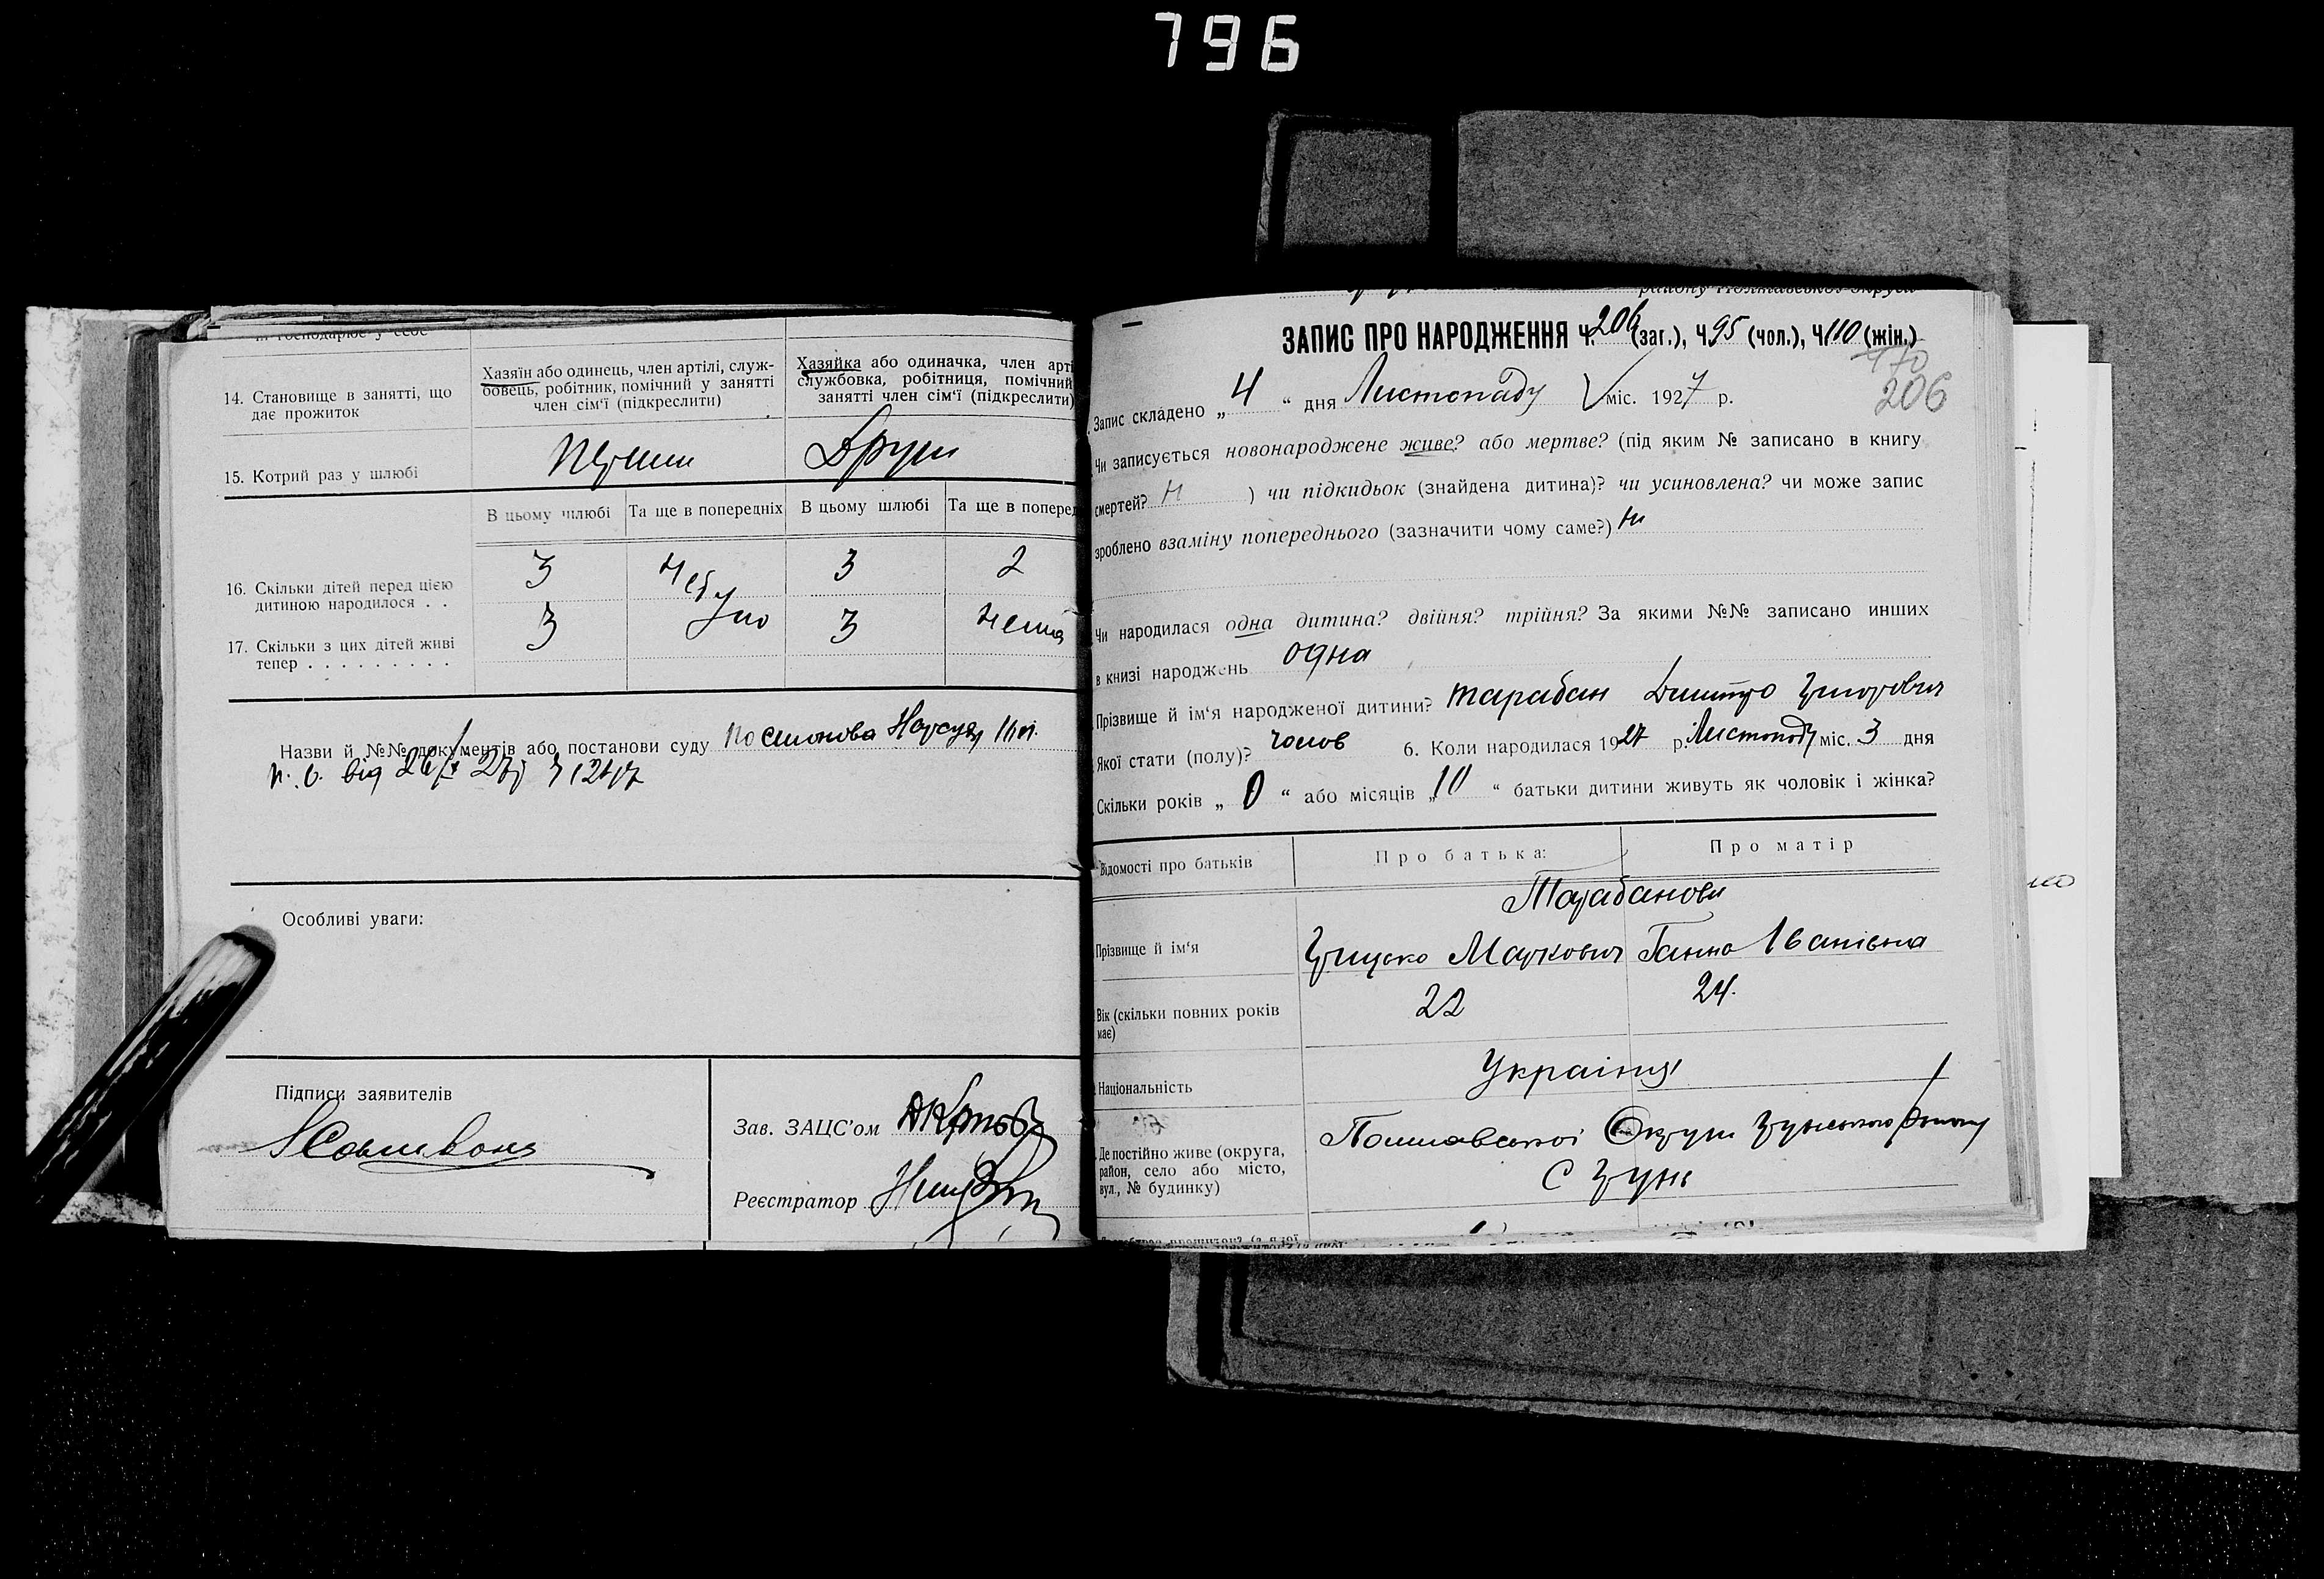 796
14. Становище в занятті, що
дає прожиток
Хазяїн або одинець, член артілі, служ-
бовець, робітник, помічний у занятті
член сім'ї (підкреслити)
Хазяйка або одиначка, член арті
службовка, робітниця, помічний
занятті член сім'ї (підкреслити)
15. Котрий раз у шлюбі
Перший
Другий
В цьому шлюбі
Та ще в попередніх
В цьому шлюбі
Та ще в поперед
16. Скільки дітей перед цією
дитиною народилося . .
3
Небуло
3
2
17. Скільки з цих дітей живі
тепер . . . . . . . . .
3
3
Нема
Назви й №№ документів або постанови суду Постанова Нарсуду
від
Особливі уваги:
Підписи заявителів
Зав. ЗАЦС'ом
Реєстратор
району Полтавської округи
ЗАПИС ПРО НАРОДЖЕННЯ Ч. 206 (заг.), Ч 95 (чол.), Ч 110 (жін.)
170
206
Запис складено „ 4 “ дня Листопаду міс. 1927 р.
Чи записується новонароджене живе? або мертве? (під яким № записано в книгу
смертей? Н ) чи підкидьок (знайдена дитина)? чи усиновлена? чи може запис
зроблено взаміну попереднього (зазначити чому саме?) Ні
Чи народилася одна дитина? двійня? трійня? За якими №№ записано инших
в книзі народжень одна
Прізвище й ім'я народженої дитини? Тарабан Дмитро Григорович
Якої стати (полу)? чолов 6. Коли народилася 1927 р. Листопаду міс. 3 дня
Скільки років „ 0 “ або місяців „ 10 “ батьки дитини живуть як чоловік і жінка?
Відомості про батьків
Про батька:
Про матір
Тарабанови
Прізвище й ім'я
Грицько Маркович
Ганна Іванівна
Вік (скільки повних років
має)
22
24.
Національність
Українці
Де постійно живе (округа,
район, село або місто,
вул., № будинку)
Полтавської Округи Грунського району
с Грунь